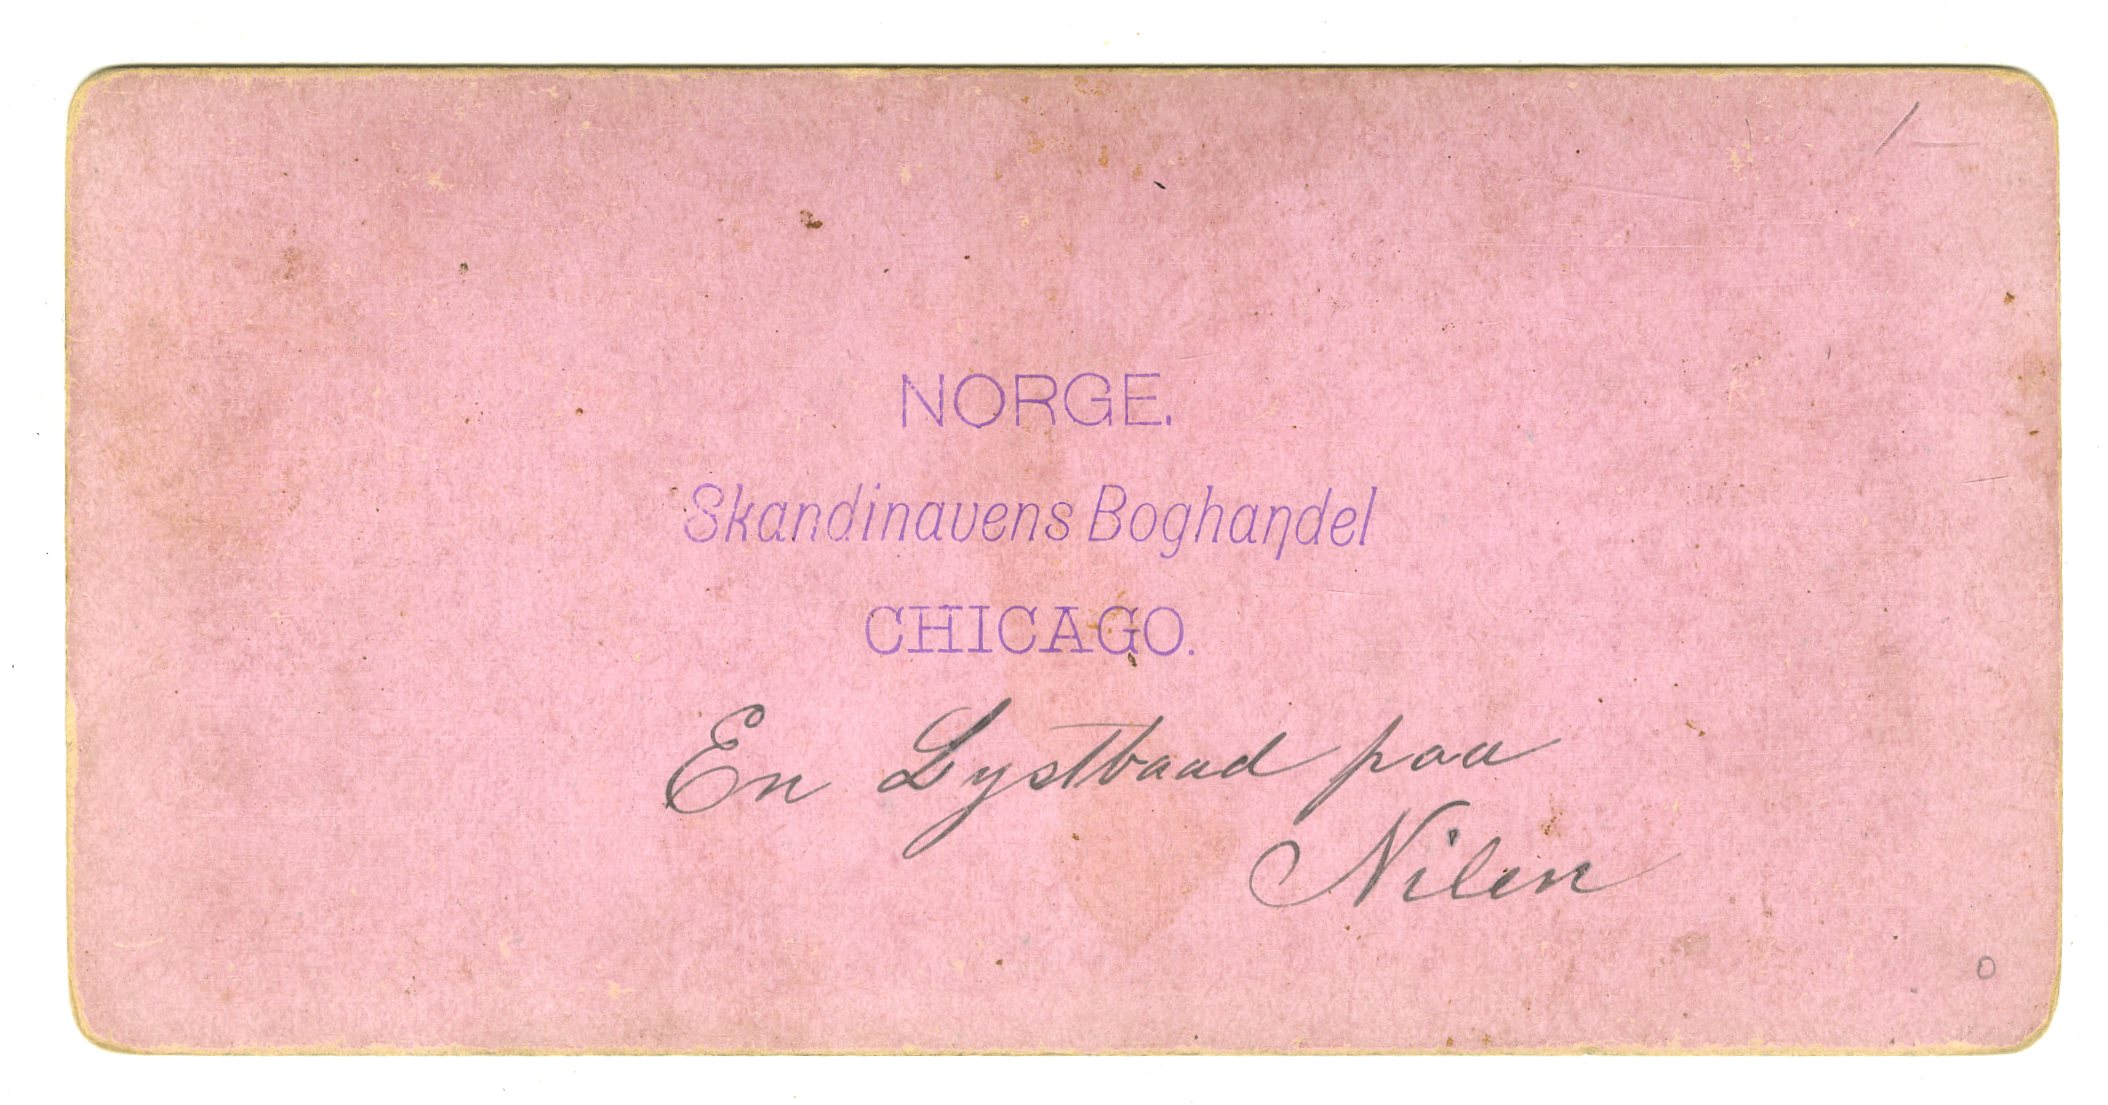 NORGE.
Skandinavens Boghandel
CHICAGO.
En Lystbaad paa
Nilen
0